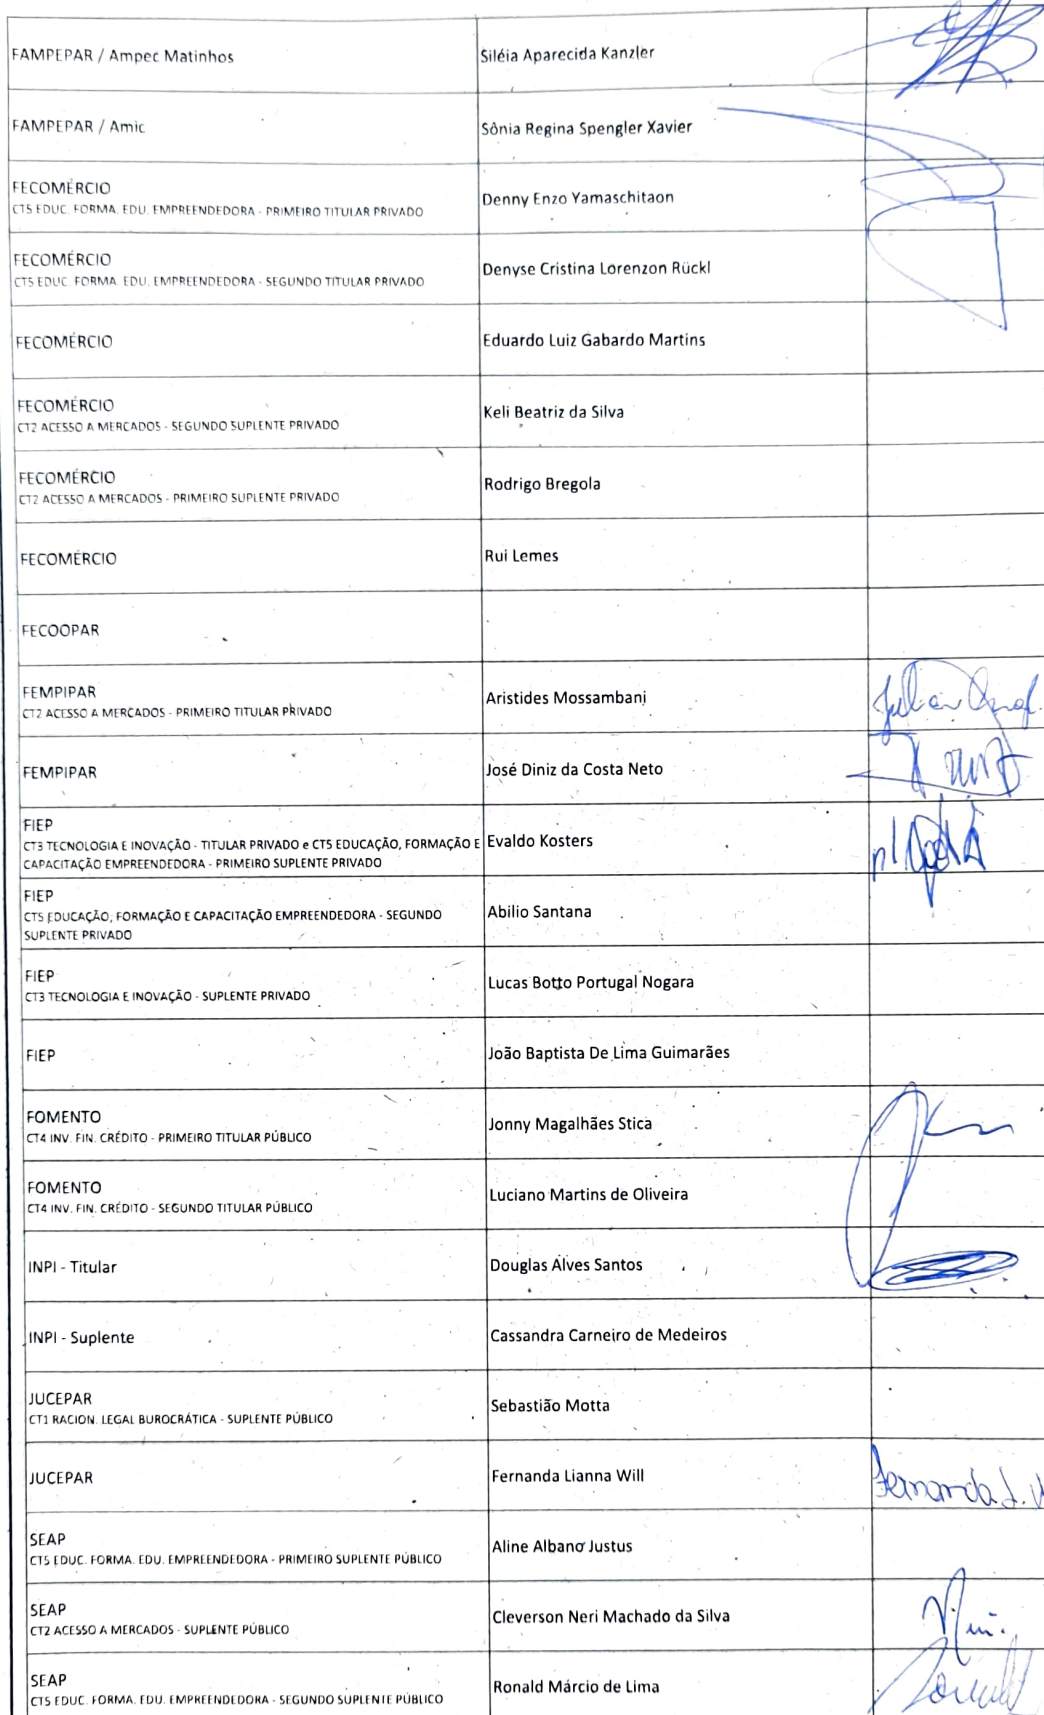 FAMPEPAR / Ampec Matinhos
Siléia Aparecida Kanzler
FAMPEPAR / Amic
Sônia Regina Spengler Xavier
FECOMÉRCIO
CT5 EDUC. FORMA. EDU. EMPREENDEDORA - PRIMEIRO TITULAR PRIVADO
Denny Enzo Yamaschitaon
FECOMÉRCIO
CT5 EDUC. FORMA. EDU. EMPREENDEDORA - SEGUNDO TITULAR PRIVADO
Denyse Cristina Lorenzon Rückl
FECOMÉRCIO
Eduardo Luiz Gabardo Martins
FECOMÉRCIO
CT2 ACESSO A MERCADOS - SEGUNDO SUPLENTE PRIVADO
Keli Beatriz da Silva
FECOMÉRCIO
CT2 ACESSO A MERCADOS - PRIMEIRO SUPLENTE PRIVADO
Rodrigo Bregola
FECOMÉRCIO
Rui Lemes
FECOOPAR
FEMPIPAR
CT2 ACESSO A MERCADOS - PRIMEIRO TITULAR PRIVADO
Aristides Mossambani
FEMPIPAR
José Diniz da Costa Neto
FIEP
CT3 TECNOLOGIA E INOVAÇÃO - TITULAR PRIVADO e CT5 EDUCAÇÃO, FORMAÇÃO E
CAPACITAÇÃO EMPREENDEDORA - PRIMEIRO SUPLENTE PRIVADO
Evaldo Kosters
FIEP
CT5 EDUCAÇÃO, FORMAÇÃO E CAPACITAÇÃO EMPREENDEDORA - SEGUNDO
SUPLENTE PRIVADO
Abilio Santana
FIEP
CT3 TECNOLOGIA E INOVAÇÃO - SUPLENTE PRIVADO
Lucas Botto Portugal Nogara
FIEP
João Baptista De Lima Guimarães
FOMENTO
CT4 INV. FIN. CRÉDITO - PRIMEIRO TITULAR PÚBLICO
Jonny Magalhães Stica
FOMENTO
CT4 INV. FIN. CRÉDITO - SEGUNDO TITULAR PÚBLICO
Luciano Martins de Oliveira
INPI - Titular
Douglas Alves Santos
INPI - Suplente
Cassandra Carneiro de Medeiros
JUCEPAR
CT1 RACION. LEGAL BUROCRÁTICA - SUPLENTE PÚBLICO
Sebastião Motta
JUCEPAR
Fernanda Lianna Will
Fernanda L. W
SEAP
CT5 EDUC. FORMA. EDU. EMPREENDEDORA - PRIMEIRO SUPLENTE PÚBLICO
Aline Albano Justus
SEAP
CT2 ACESSO A MERCADOS - SUPLENTE PÚBLICO
Cleverson Neri Machado da Silva
SEAP
CT5 EDUC. FORMA. EDU. EMPREENDEDORA - SEGUNDO SUPLENTE PÚBLICO
Ronald Márcio de Lima